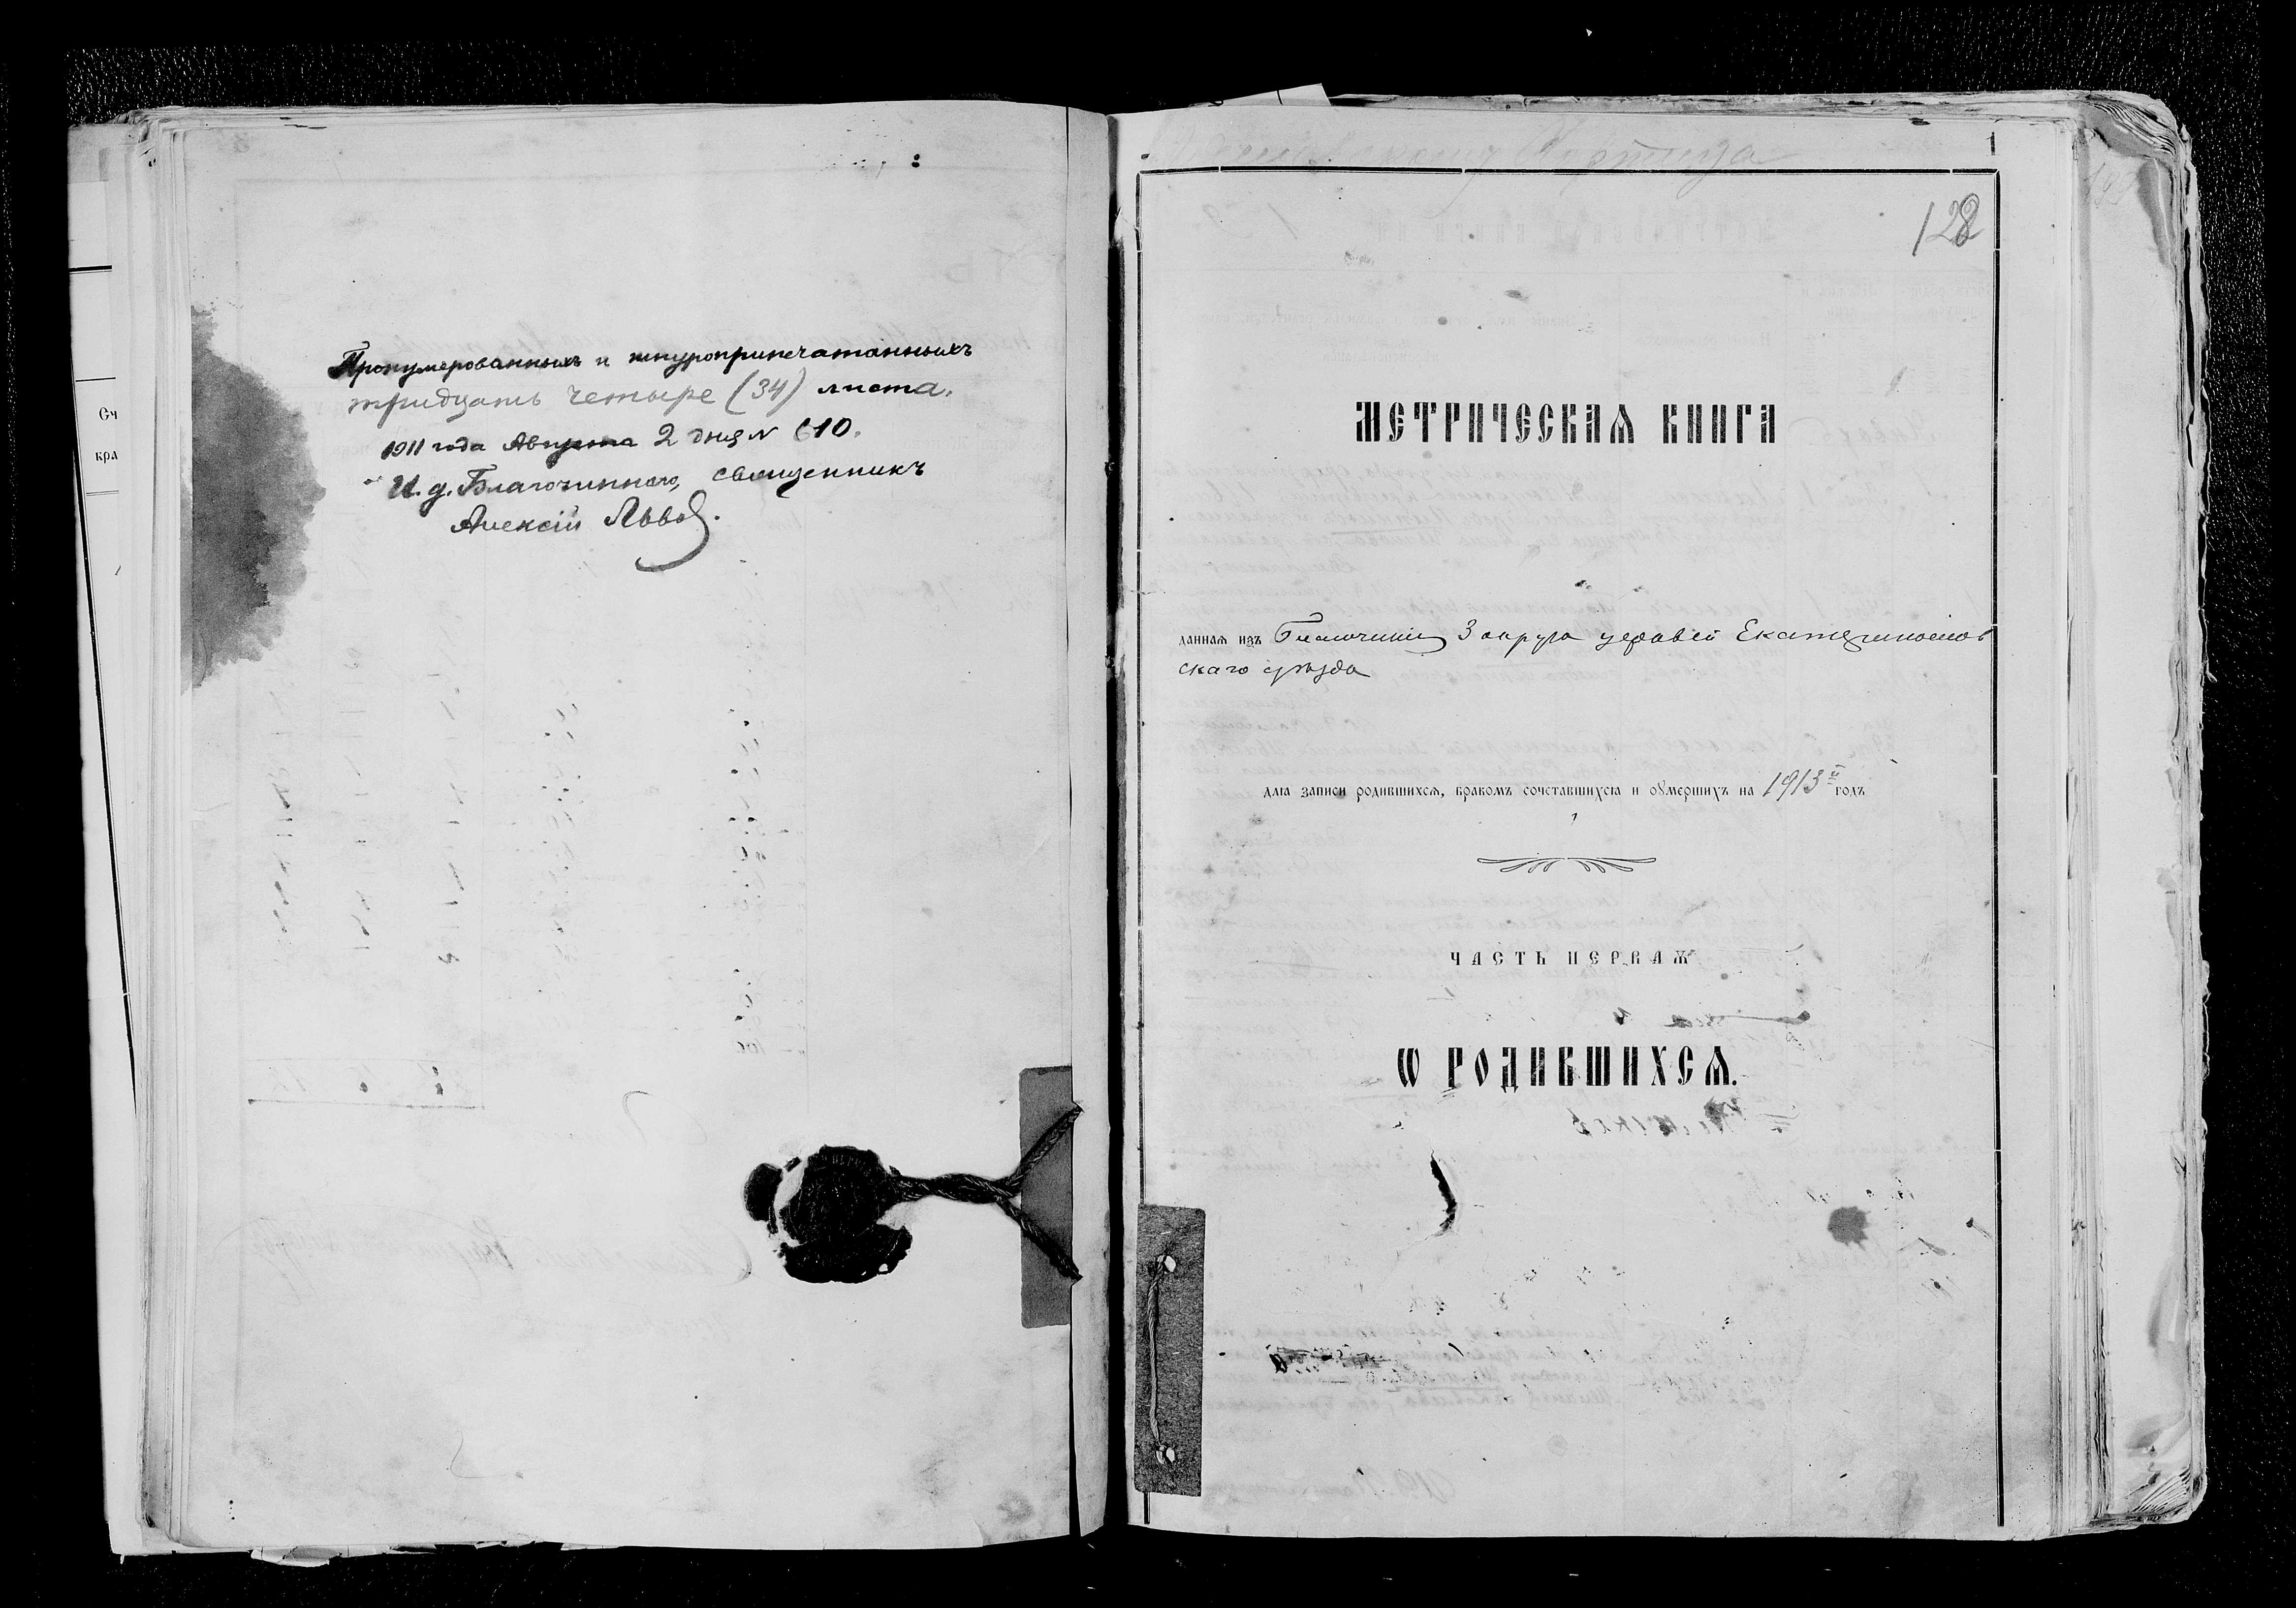 Пронумерованныхъ и шнуроприпечатанныхъ
тридцать четыре (34) листа.
1911 года Августа 2 дня № 610.
И. д. Благочиннаго, священникъ
Алексій Львов.
Сч
кра
Хортица
1
128
МЕТРИЧЕСКАѦ КНИГА
даннаѧ изъ Благочинія 3 округа церквей Екатеринослав
скаго уѣзда
длѧ записи родившихсѧ, бракомъ сочетавшихсѧ и оумершихъ на 1913й годъ
ЧАСТЬ ПЕРВАѦ
Ѡ РОДИВШИХСѦ.